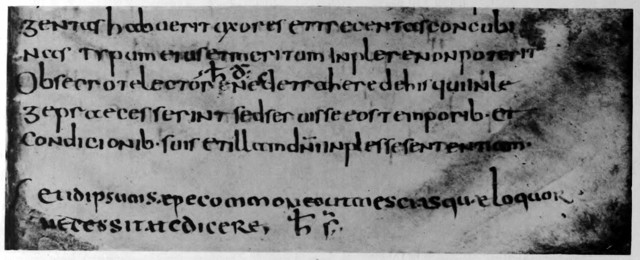 gentas habuerit uxores et trecentas concubi
nas typum eius et meritum inplere non poterit
hd
Obsecro te lector detrahere de his qui in le
ge praecesserint sed seruisse eos temporib· et
condicionib· suis et illam dni inplesse sententiam·
et id ipsum saepe commoneo ut me scias quae loquor
necessitate dicere, hs.